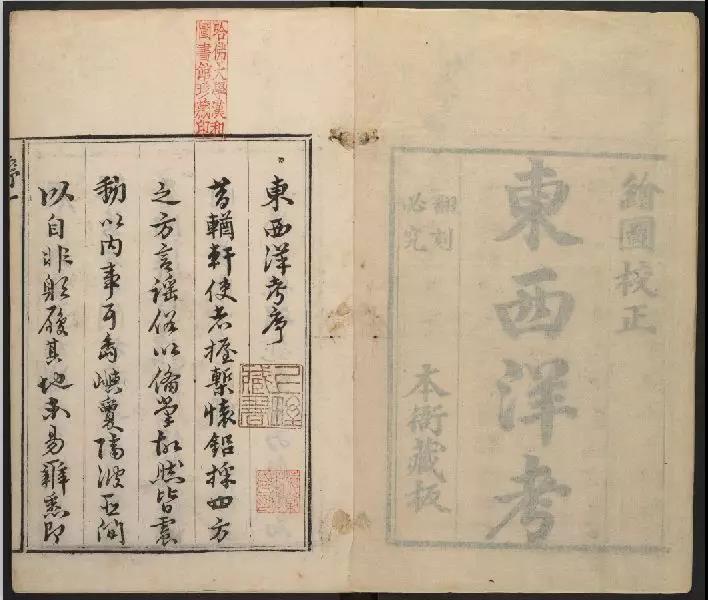 繪圖校正
東西洋考
翻刻
必究
本衙藏板
哈佛大學漢和
圖書館珍藏印
東西洋考序
昔輶軒使者握槧懷鉛採四方
之方言謡俗以備掌故然皆寰
以内事耳島嶼夐隔波臣间
以自非躬履其地未易雜悉即
藏書
序一